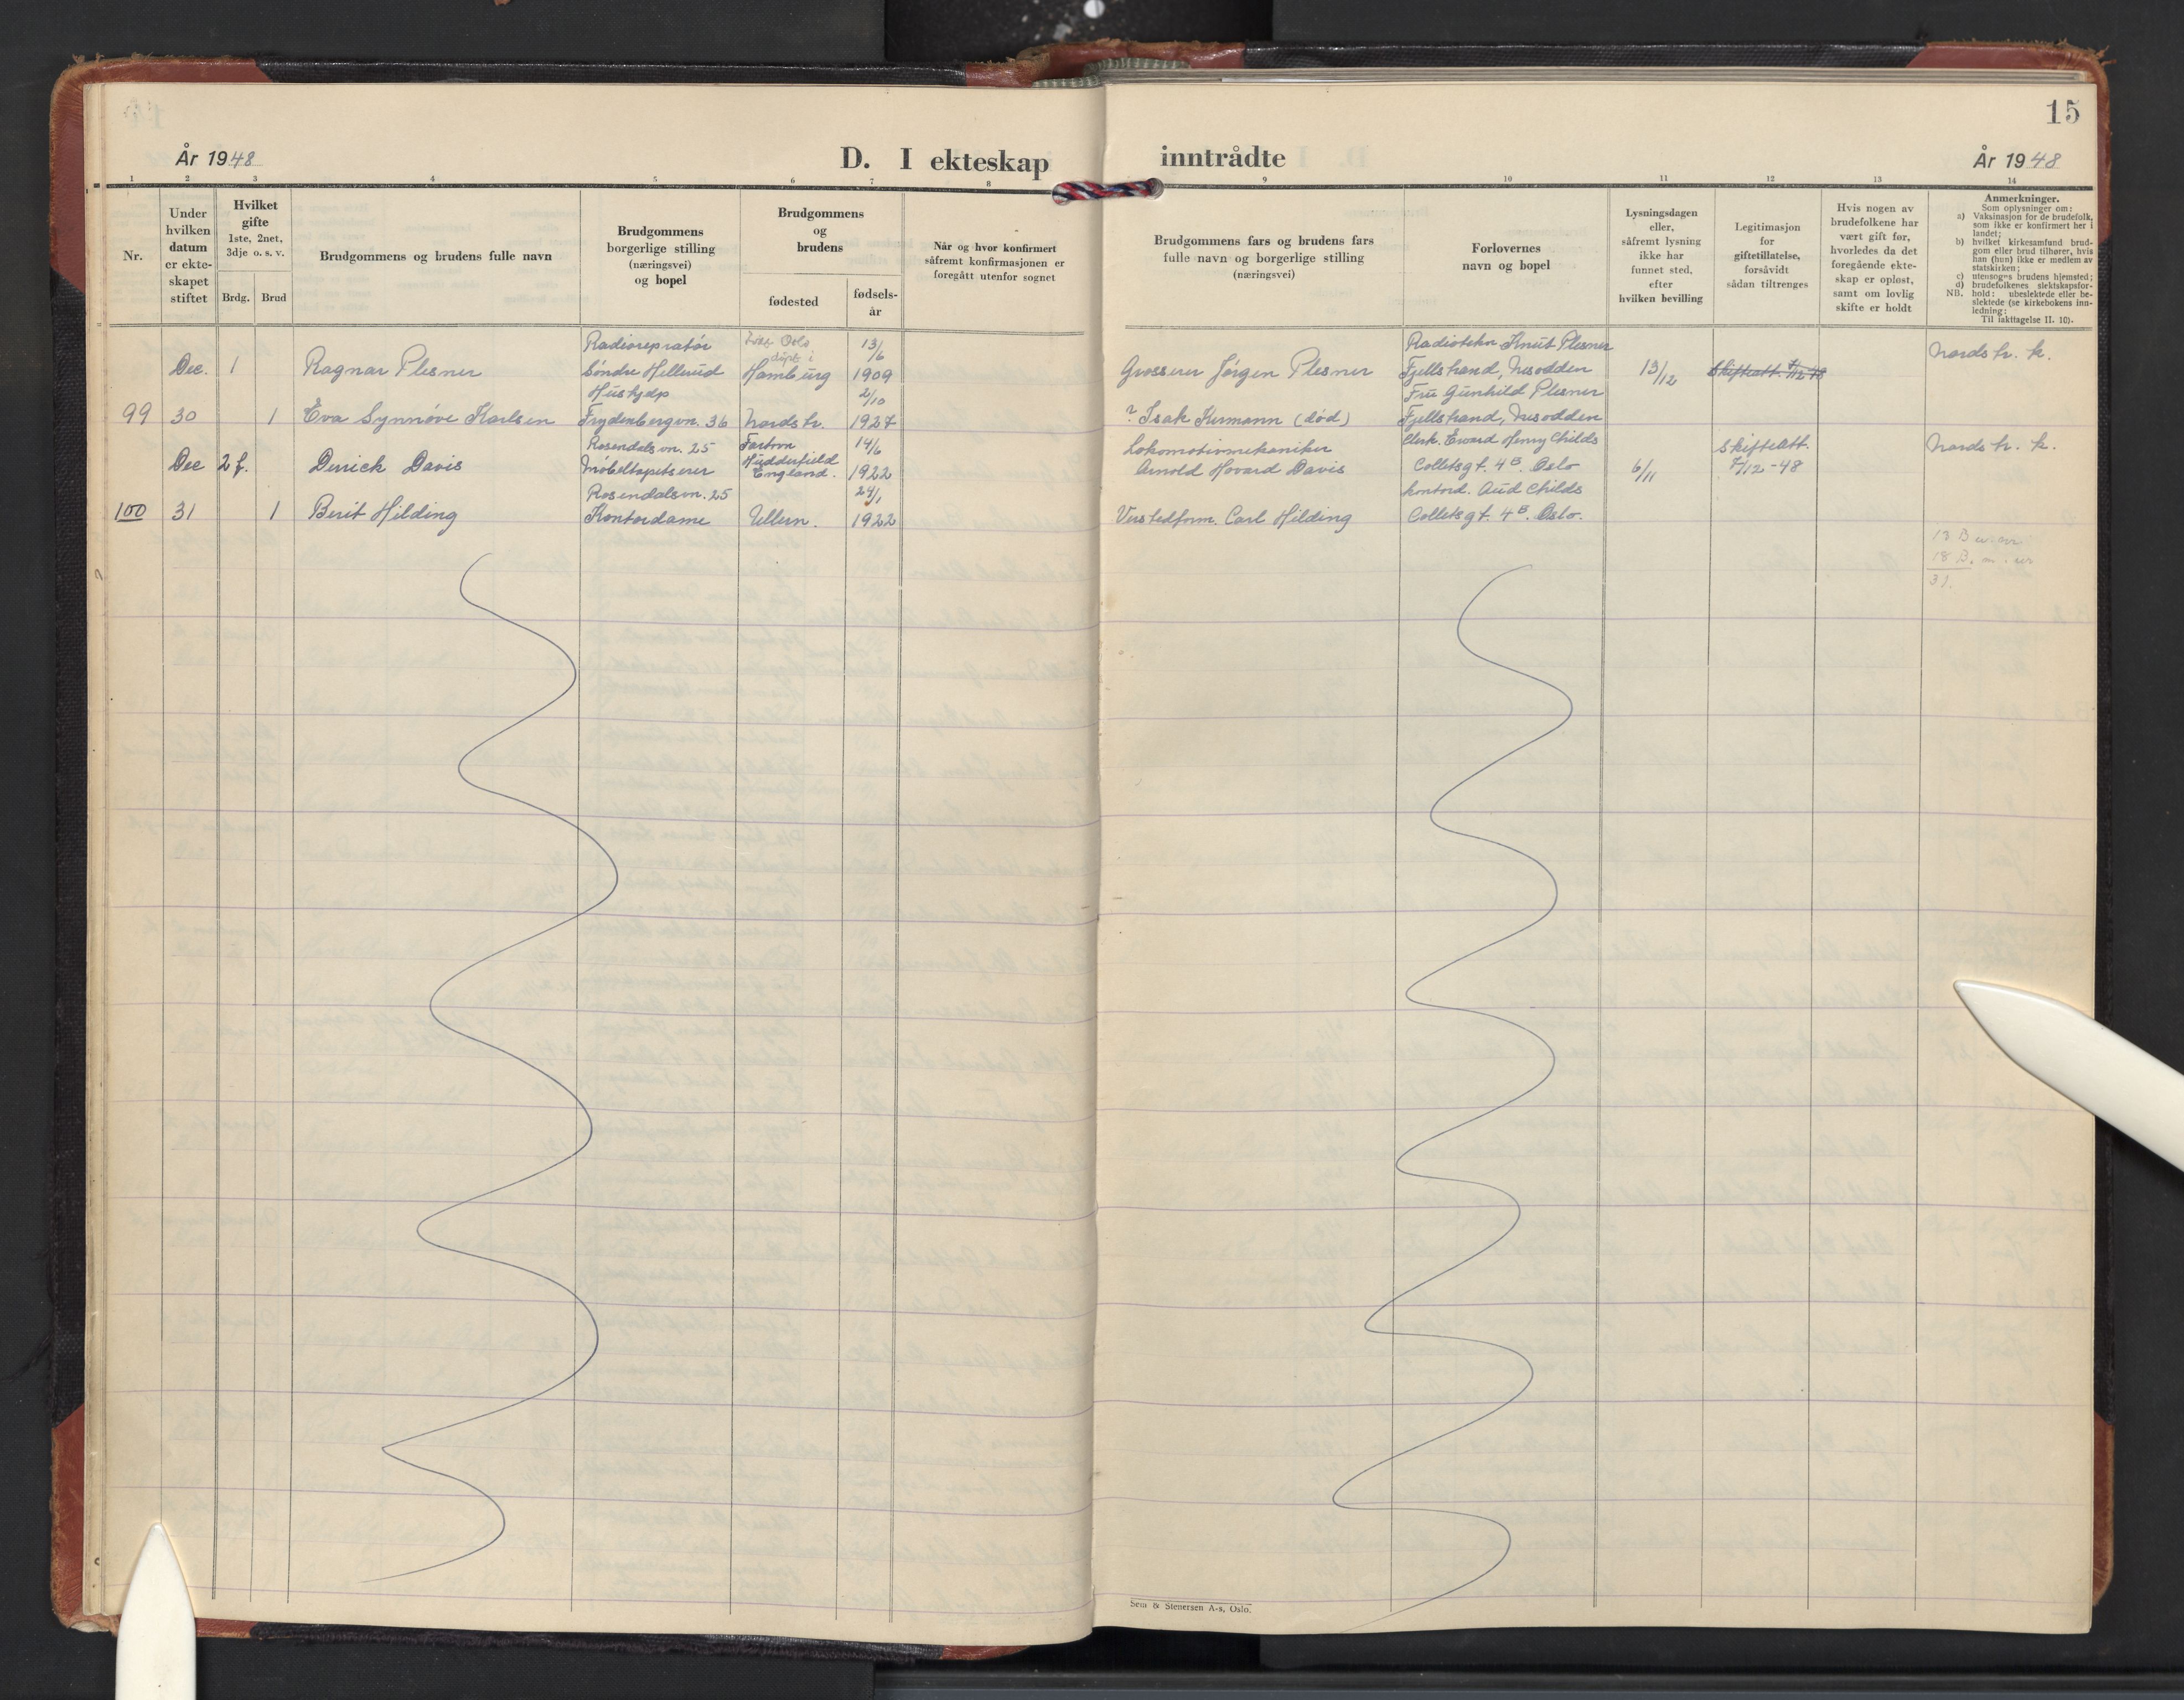 15
År 1948
D. I ekteskap
inntrådte
År 1948
1 2 3 4 5 6 7 8 9 10 11 12 13 14
Nr.
Under
hvilken
datum
er ekte-
skapet
stiftet
Hvilket
gifte
1ste, 2net,
3dje o. s. v.
Brdg. Brud
Brudgommens og brudens fulle navn
Brudgommens
borgerlige stilling
(næringsvei)
og bopel
Brudgommens
og
brudens
fødested
fødsels-
år
Når og hvor konfirmert
såfremt konfirmasjonen er
foregått utenfor sognet
Brudgommens fars og brudens fars
fulle navn og borgerlige stilling
(næringsvei)
Forlovernes
navn og bopel
Lysningsdagen
eller,
såfremt lysning
ikke har
funnet sted,
efter
hvilken bevilling
Legitimasjon
for
giftetillatelse,
forsåvidt
sådan tiltrenges
Hvis nogen av
brudefolkene har
vært gift før,
hvorledes da det
foregående ekte-
skap er opløst,
samt om lovlig
skifte er holdt
Anmerkninger.
Som oplysninger om:
a) Vaksinasjon for de brudefolk,
som ikke er konfirmert her i
landet;
b) hvilket kirkesamfund brud-
gom eller brud tilhører, hvis
han (hun) ikke er medlem av
statskirken;
c) utensogns brudens hjemsted;
d) brudefolkenes slektskapsfor-
NB. hold: ubeslektede eller be-
slektede (se kirkebokens inn-
ledning:
Til iakttagelse II. 10).
Radiorepratør Oslo 13/6 Radiotekn Knut Plesner
døpt i
Dec. 1 Ragnar Plesner Søndre Hellerud Hamburg 1909 Grosserer Jørgen Plesner Fjellstrand, Nesodden 13/12 Skifteatt. 7/12 48 Nordstr. k.
Hushjelp 2/10 Fru Gunhild Plesner
99 30 1 Eva Synnøve Karlsen Frydenbergvn. 36 Nordstr. 1927 ? Isak Kurmann (død) Fjellstrand, Nesodden
Rosendalsvn. 25 14/6 Lokomotivmekaniker Clerk. Eward Henry Childs Skifteatt. Nordstr. k.
Dec 2 f. Derrick Davis Møbeltapetserer Hudderfield England. 1922 Arnold Hovard Davis Colletsgt. 4B. Oslo 6/11 7/12-48
Rosendalsvn. 25 24/1 kontord. Aud Childs
100 31 1 Berit Hilding Kontordame Ullern. 1922 Verstedform. Carl Hilding Colletsgt. 4B. Oslo.
13 B
18 B.
31.
Sem & Stenersen A-s, Oslo.